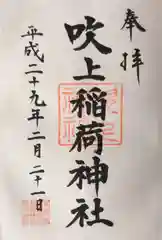 奉拝
吹上稲荷神社
平成二十九年二月二十一日